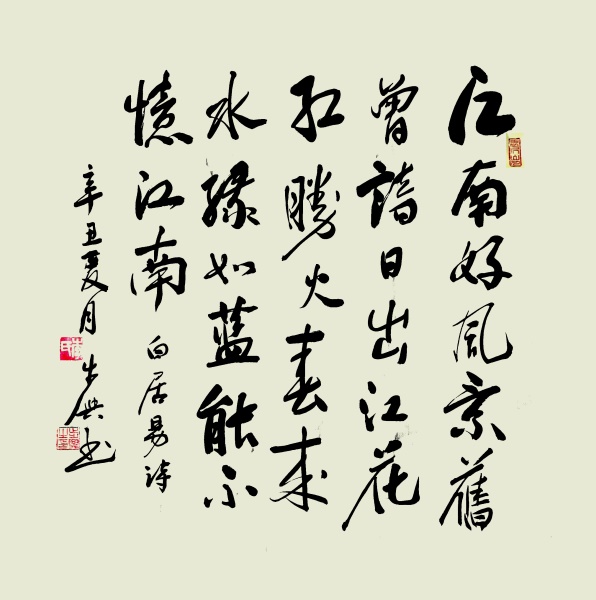 江南好風景舊
曾諳日出江花
红勝火春来
水绿如蓝能不
憶江南 白居易诗
辛丑夏月 书